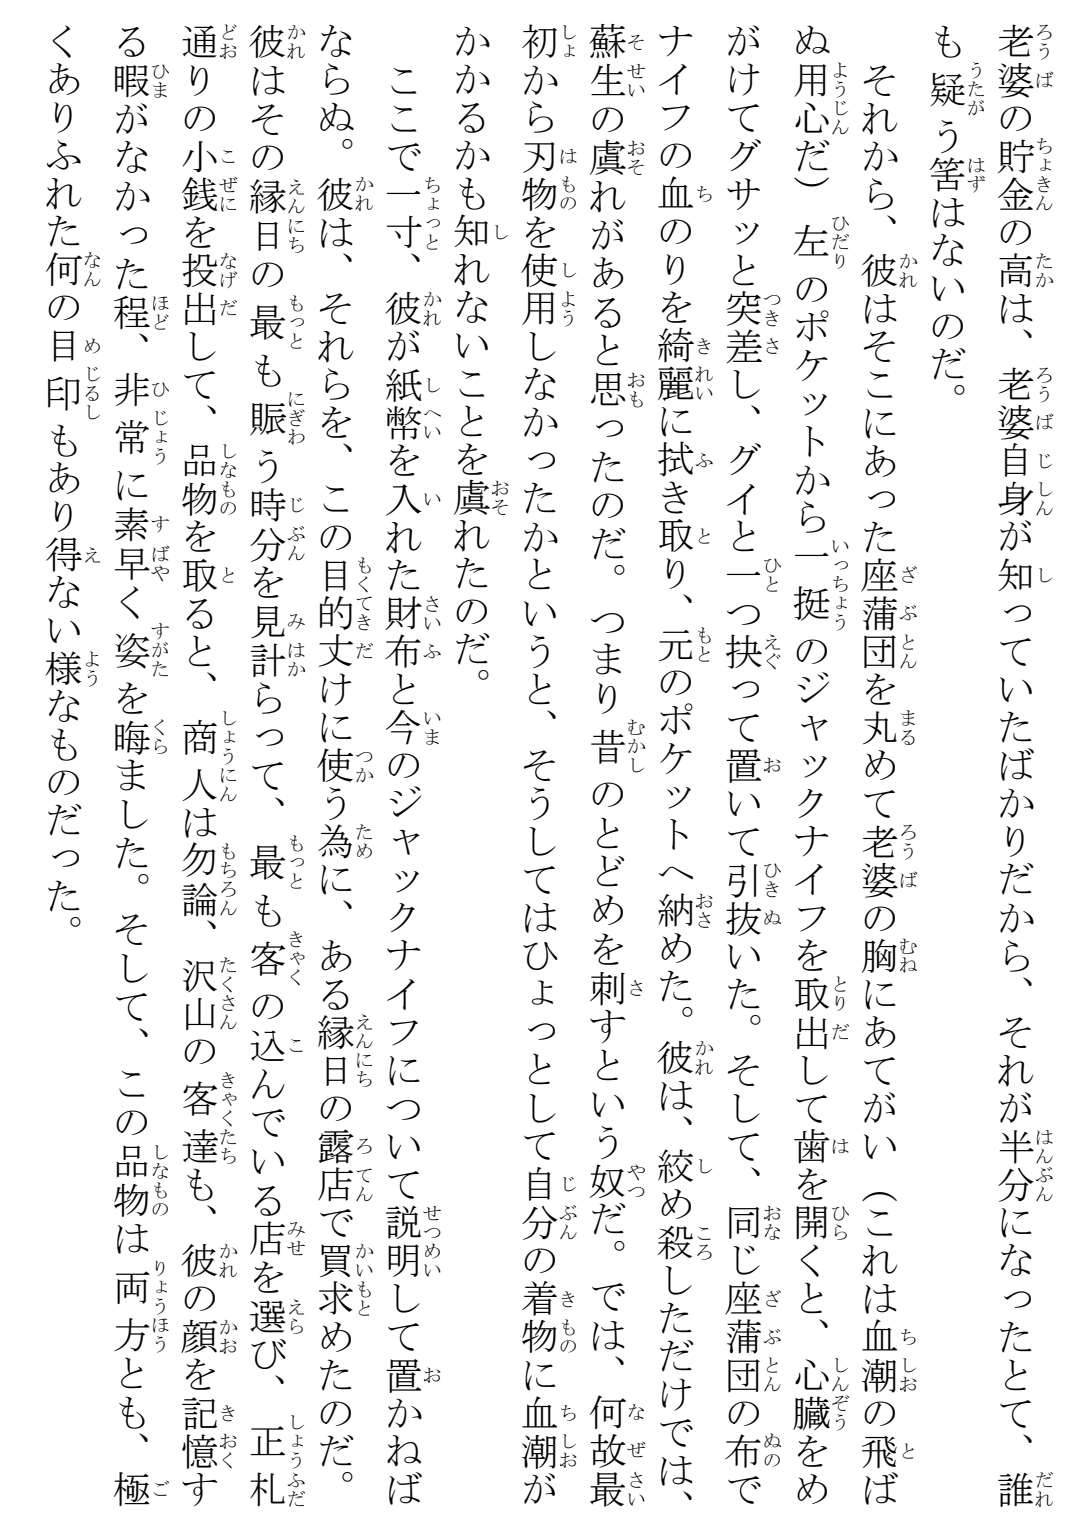 老婆の貯金の高は、老婆自身が知っていたばかりだから、それが半分になったとて、誰
も疑う筈はないのだ。
　それから、彼はそこにあった座蒲団を丸めて老婆の胸にあてがい（これは血潮の飛ば
ぬ用心だ）左のポケットから一挺のジャックナイフを取出して歯を開くと、心臓をめ
がけてグサッと突差し、グイと一つ抉って置いて引抜いた。そして、同じ座蒲団の布で
ナイフの血のりを綺麗に拭き取り、元のポケットへ納めた。彼は、絞め殺しただけでは、
蘇生の虞れがあると思ったのだ。つまり昔のとどめを刺すという奴だ。では、何故最
初から刃物を使用しなかったかというと、そうしてはひょっとして自分の着物に血潮が
かかるかも知れないことを虞れたのだ。
　ここで一寸、彼が紙幣を入れた財布と今のジャックナイフについて説明して置かねば
ならぬ。彼は、それらを、この目的丈けに使う為に、ある縁日の露店で買求めたのだ。
彼はその縁日の最も賑う時分を見計らって、最も客の込んでいる店を選び、正札
通りの小銭を投出して、品物を取ると、商人は勿論、沢山の客達も、彼の顔を記憶す
る暇がなかった程、非常に素早く姿を晦ました。そして、この品物は両方とも、極
くありふれた何の目印もあり得ない様なものだった。